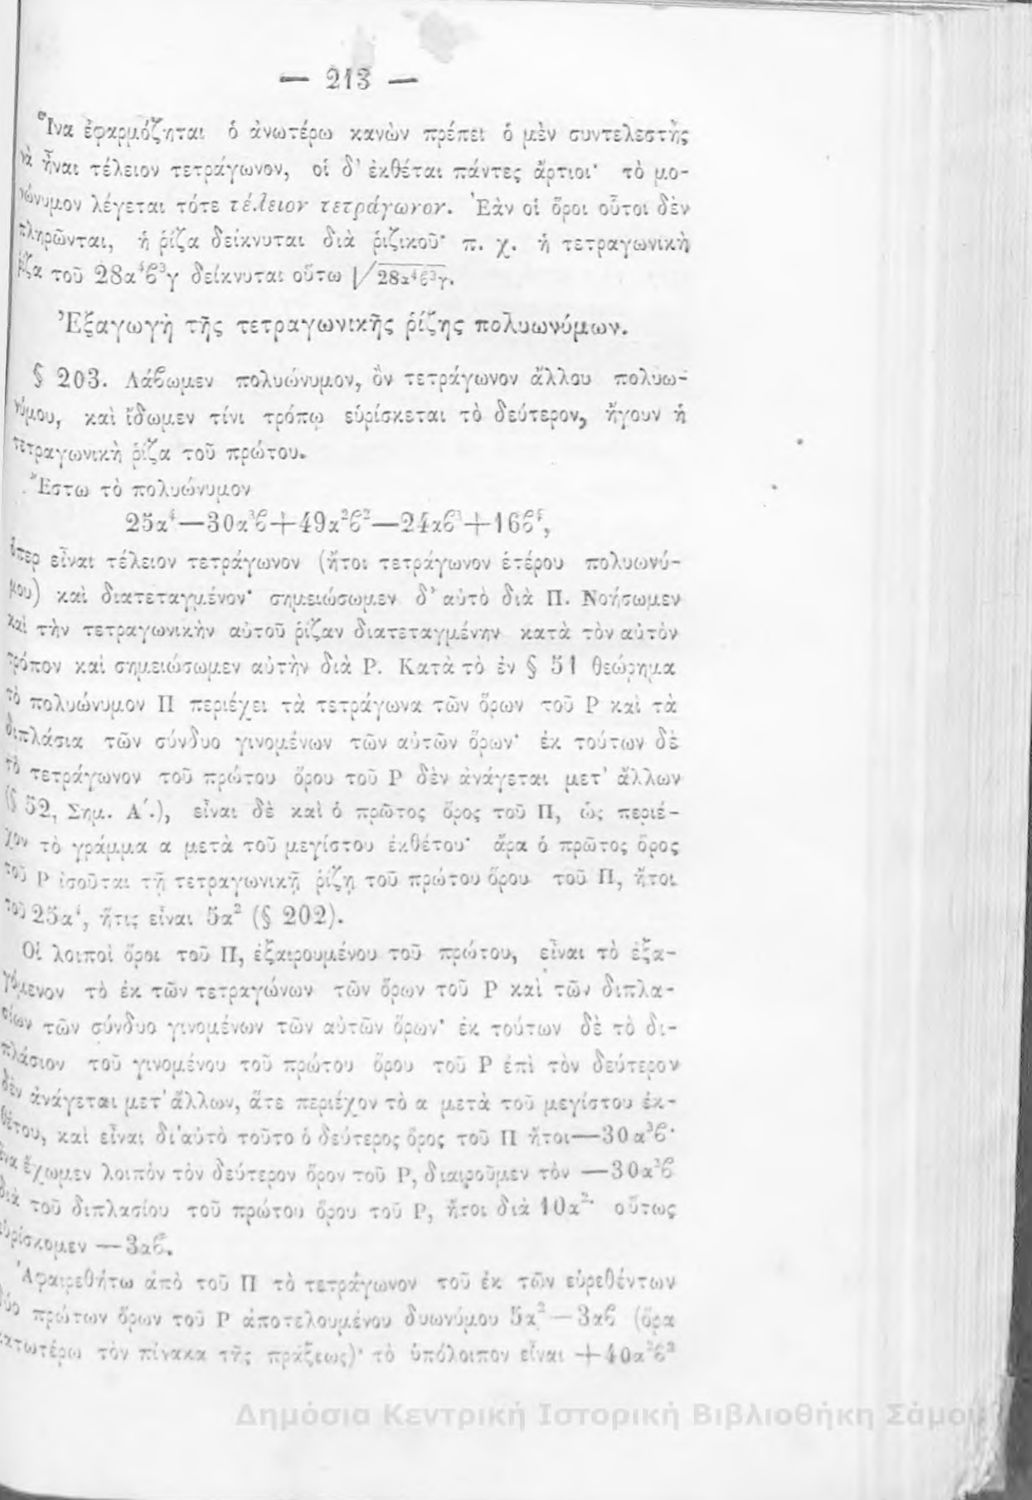 — 213 —
Ἵνα ἐφαρμόζηται ὁ ἀνωτέρω κανὼν πρέπει ὁ μὲν συντελεστὴς
νὰ ἦναι τέλειον τετράγωνον, οἱ δ' ἐκθέται πάντες ἄρτιοι· τὸ μο-
νώνυμον λέγεται τότε τέλειον τετράγωνον. Ἐὰν οἱ ὅροι οὗτοι δὲν
πληρῶνται, ἡ ῥίζα δείκνυται διὰ ῥιζικοῦ· π. χ. ἡ τετραγωνικὴ
ῥίζα τοῦ 28α⁴β³γ δείκνυται οὕτω √28α⁴β³γ.
Ἐξαγωγὴ τῆς τετραγωνικῆς ῥίζης πολυωνύμων.
§ 203. Λάβωμεν πολυώνυμον, ὂν τετράγωνον ἄλλου πολυω-
νύμου, καὶ ἴδωμεν τίνι τρόπῳ εὑρίσκεται τὸ δεύτερον, ἤγουν ἡ
τετραγωνικὴ ῥίζα τοῦ πρώτου.
Ἔστω τὸ πολυώνυμον
25α⁴—30α³β+49α²β²—24αβ³+16β⁴,
ὅπερ εἶναι τέλειον τετράγωνον (ἤτοι τετράγωνον ἑτέρου πολυωνύ-
μου) καὶ διατεταγμένον· σημειώσωμεν δ' αὐτὸ διὰ Π. Νοήσωμεν
καὶ τὴν τετραγωνικὴν αὐτοῦ ῥίζαν διατεταγμένην κατὰ τὸν αὐτὸν
τρόπον καὶ σημειώσωμεν αὐτὴν διὰ Ρ. Κατὰ τὸ ἐν § 51 θεώρημα
τὸ πολυώνυμον Π περιέχει τὰ τετράγωνα τῶν ὅρων τοῦ Ρ καὶ τὰ
διπλάσια τῶν σύνδυο γινομένων τῶν αὐτῶν ὅρων· ἐκ τούτων δὲ
τὸ τετράγωνον τοῦ πρώτου ὅρου τοῦ Ρ δὲν ἀνάγεται μετ' ἄλλων
(§ 52, Σημ. Α'.), εἶναι δὲ καὶ ὁ πρῶτος ὅρος τοῦ Π, ὡς περιέ-
χον τὸ γράμμα α μετὰ τοῦ μεγίστου ἐκθέτου· ἄρα ὁ πρῶτος ὅρος
τοῦ Ρ ἰσοῦται τῇ τετραγωνικῇ ῥίζῃ τοῦ πρώτου ὅρου τοῦ Π, ἤτοι
τοῦ 25α⁴, ἥτις εἶναι 5α² (§ 202).
Οἱ λοιποὶ ὅροι τοῦ Π, ἐξαιρουμένου τοῦ πρώτου, εἶναι τὸ ἐξα-
γόμενον τὸ ἐκ τῶν τετραγώνων τῶν ὅρων τοῦ Ρ καὶ τῶν διπλα-
σίων τῶν σύνδυο γινομένων τῶν αὐτῶν ὅρων· ἐκ τούτων δὲ τὸ δι-
πλάσιον τοῦ γινομένου τοῦ πρώτου ὅρου τοῦ Ρ ἐπὶ τὸν δεύτερον
δὲν ἀνάγεται μετ' ἄλλων, ἅτε περιέχον τὸ α μετὰ τοῦ μεγίστου ἐκ-
θέτου, καὶ εἶναι δι'αὐτὸ τοῦτο ὁ δεύτερος ὅρος τοῦ Π ἤτοι—30α³β·
ἵνα ἔχωμεν λοιπὸν τὸν δεύτερον ὅρον τοῦ Ρ, διαιροῦμεν τὸν —30α³β
διὰ τοῦ διπλασίου τοῦ πρώτου ὅρου τοῦ Ρ, ἤτοι διὰ 10α²· οὕτως
εὑρίσκομεν —3αβ.
Ἀφαιρεθήτω ἀπὸ τοῦ Π τὸ τετράγωνον τοῦ ἐκ τῶν εὑρεθέντων
δύο πρώτων ὅρων τοῦ Ρ ἀποτελουμένου δυωνύμου 5α²—3αβ (ὅρα
κατωτέρω τὸν πίνακα τῆς πράξεως)· τὸ ὑπόλοιπον εἶναι +40α²β²
Δημόσια Κεντρική Ιστορική Βιβλιοθήκη Σάμου